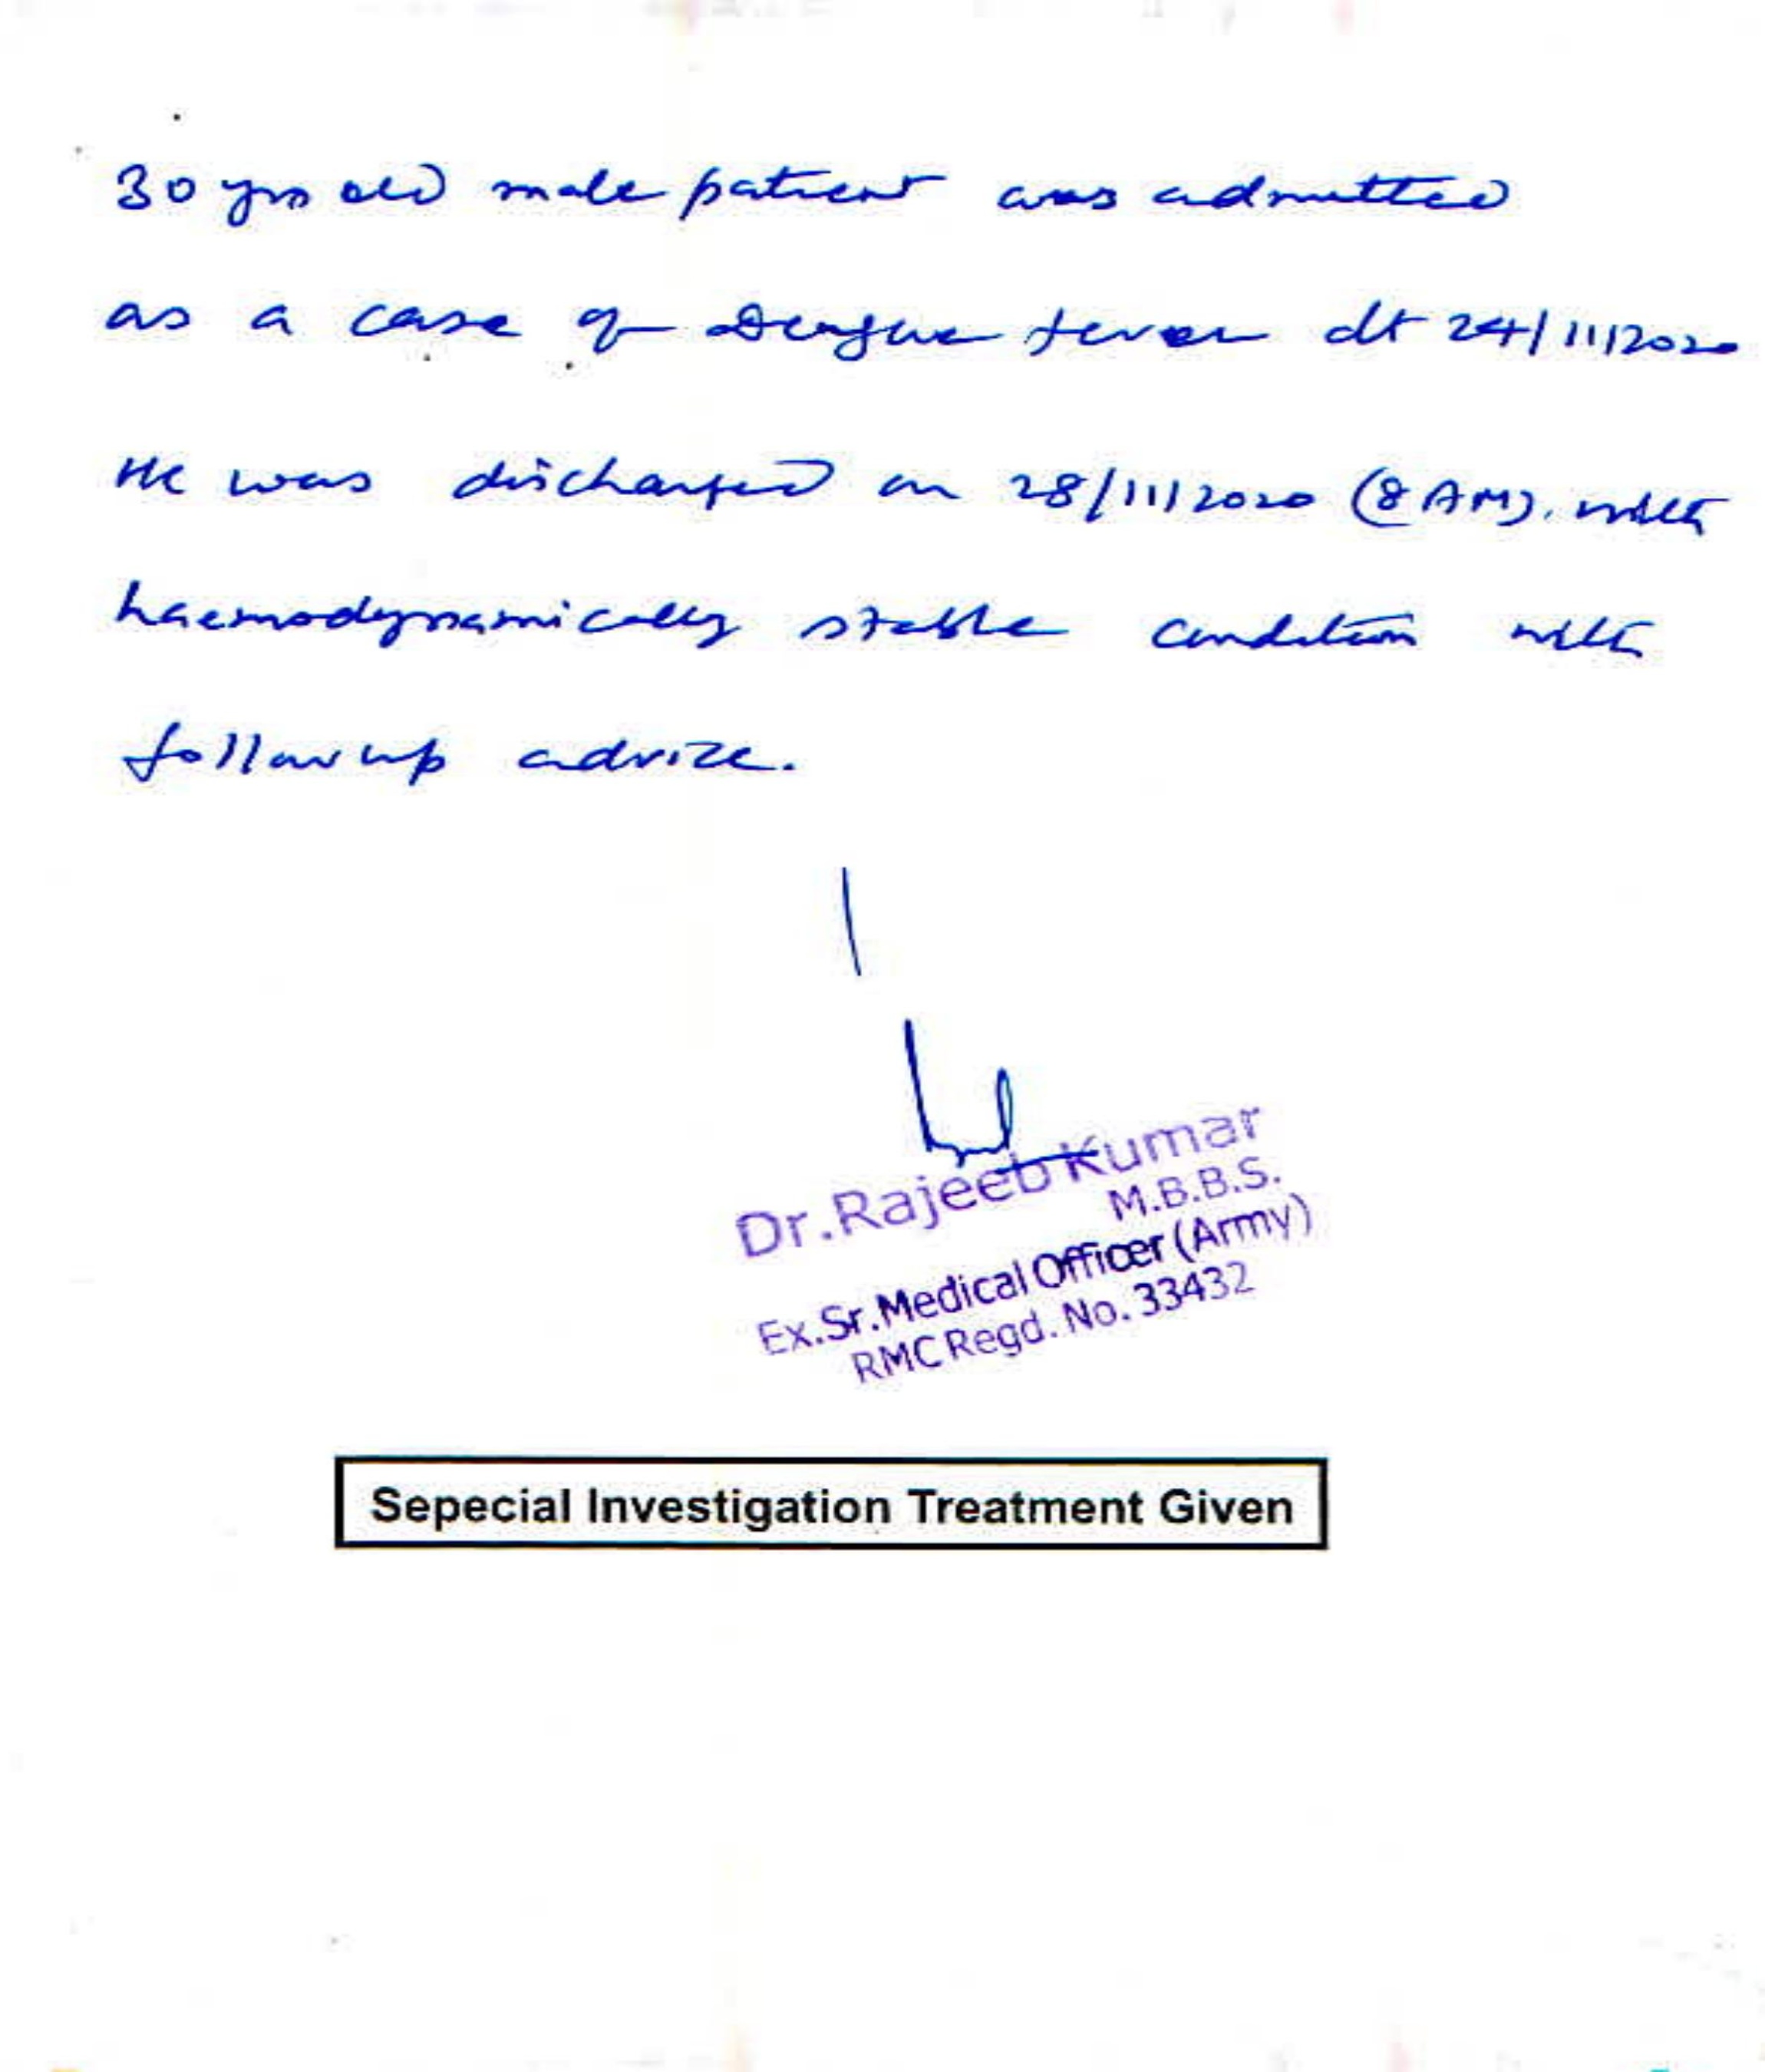 30 yrs old male patient was admitted
as a case of Dengue fever dt 24/11/2020
He was discharged on 28/11/2020 (8 AM). with
haemodynamically stable condition with
follow up advize.
Dr. Rajeeb Kumar
M.B.B.S.
Ex.Sr.Medical Officer (Army)
RMC Regd. No. 33432
Sepecial Investigation Treatment Given